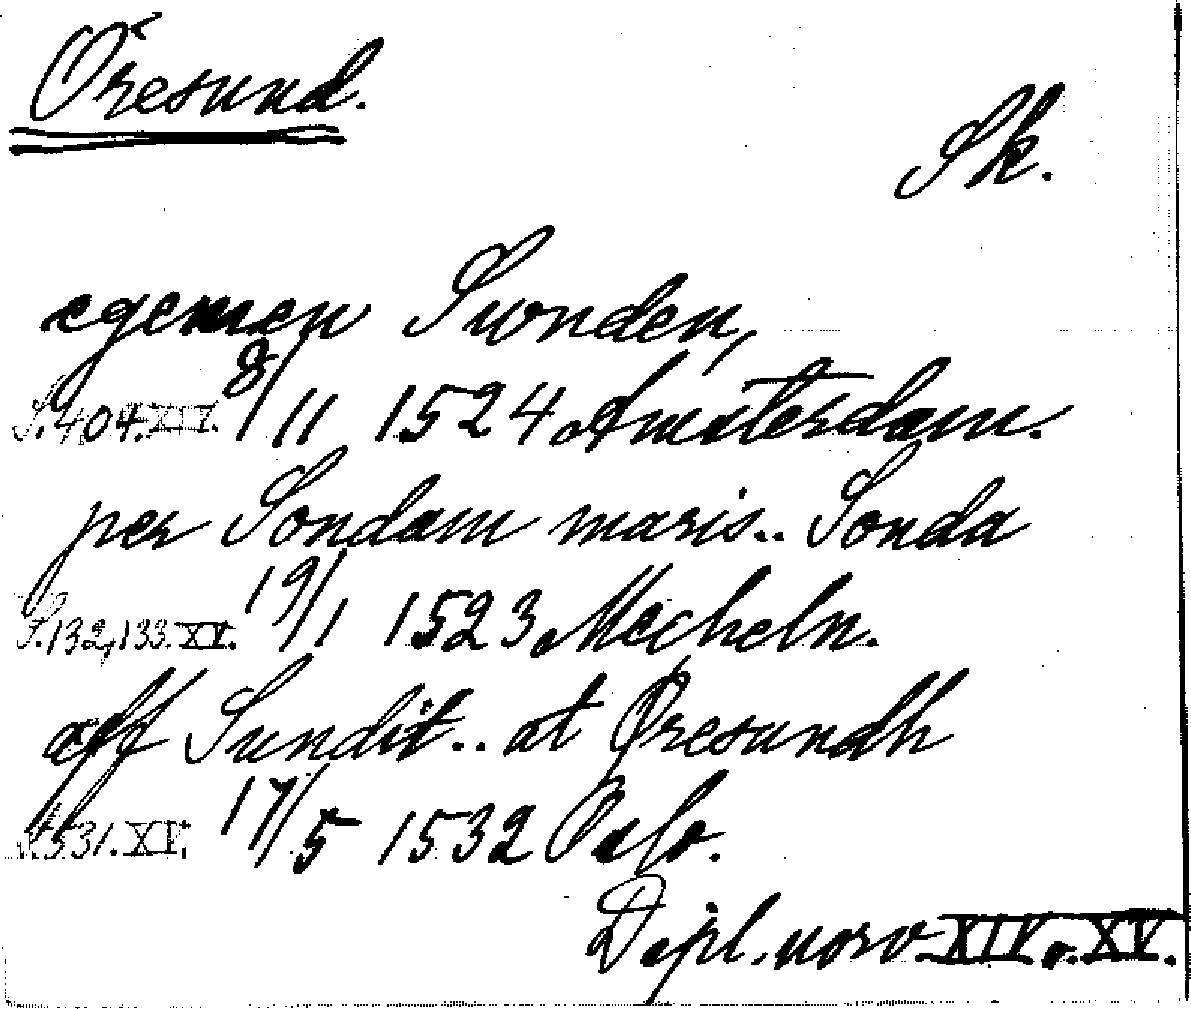 Öresund.
Sk.
egemen Swnden,
S. 404. XIV. 8/11 1524 Amsterdam.
per Sondam maris.. Sonda
S. 132, 133. XV. 19/1 1523 Mecheln.
aff Sundit.. at Øresundh
S. 531. XV. 17/5 1532 Oslo.
Dipl. norv XIV o. XV.